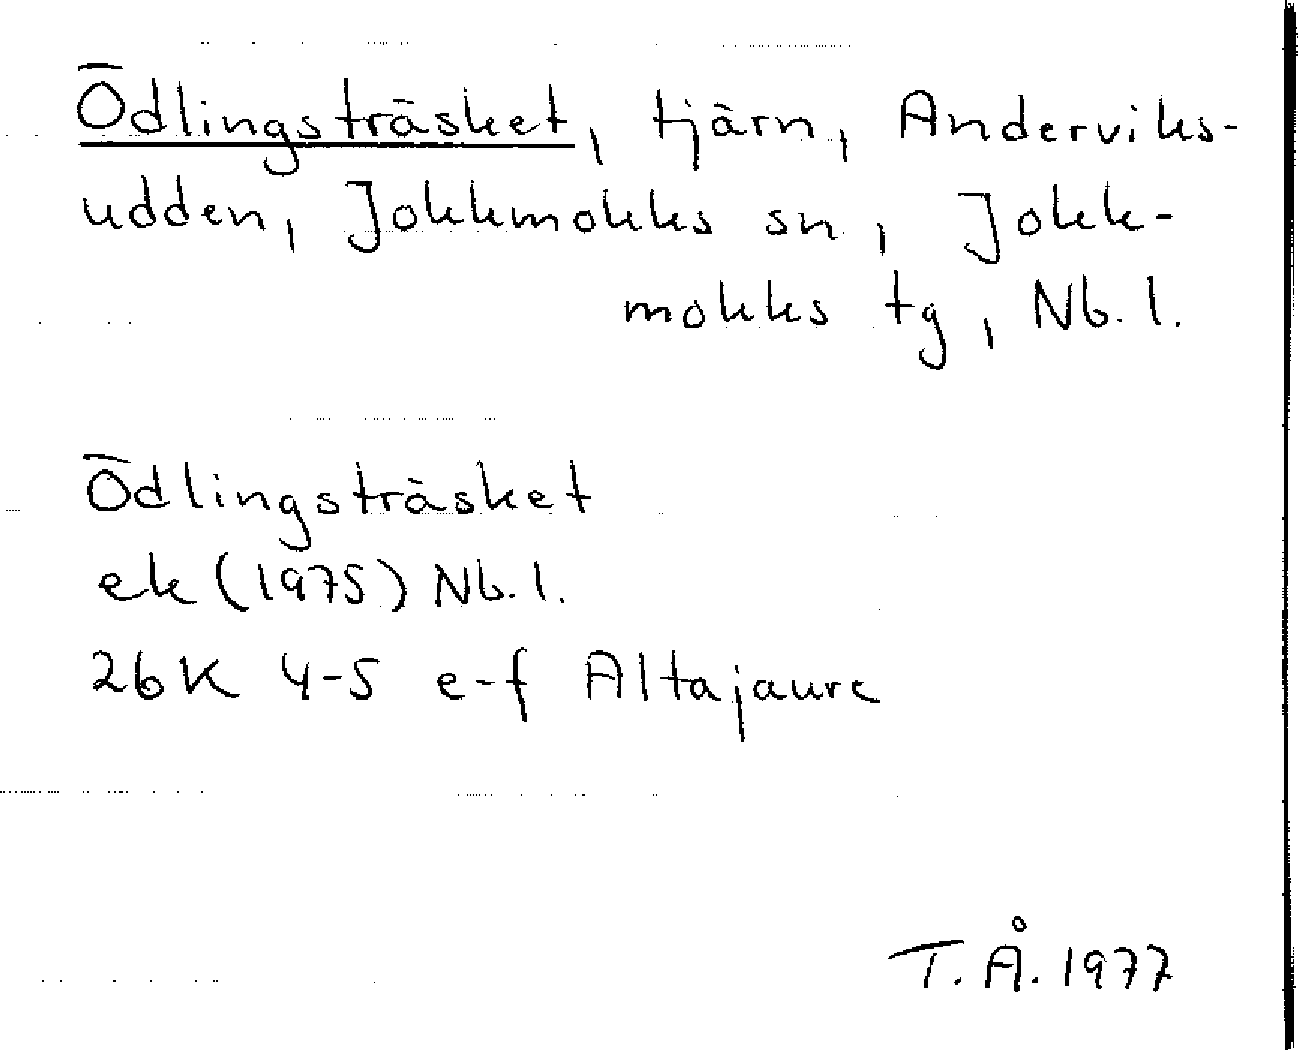 Ödlingsträsket, tjärn, Anderviks-
udden, Jokkmokks sn, Jokk-
mokks tg, Nb. l.
Ödlingsträsket
ek (1975) Nb. l.
26K 4-5 e-f Altajaure
T. Å. 1977